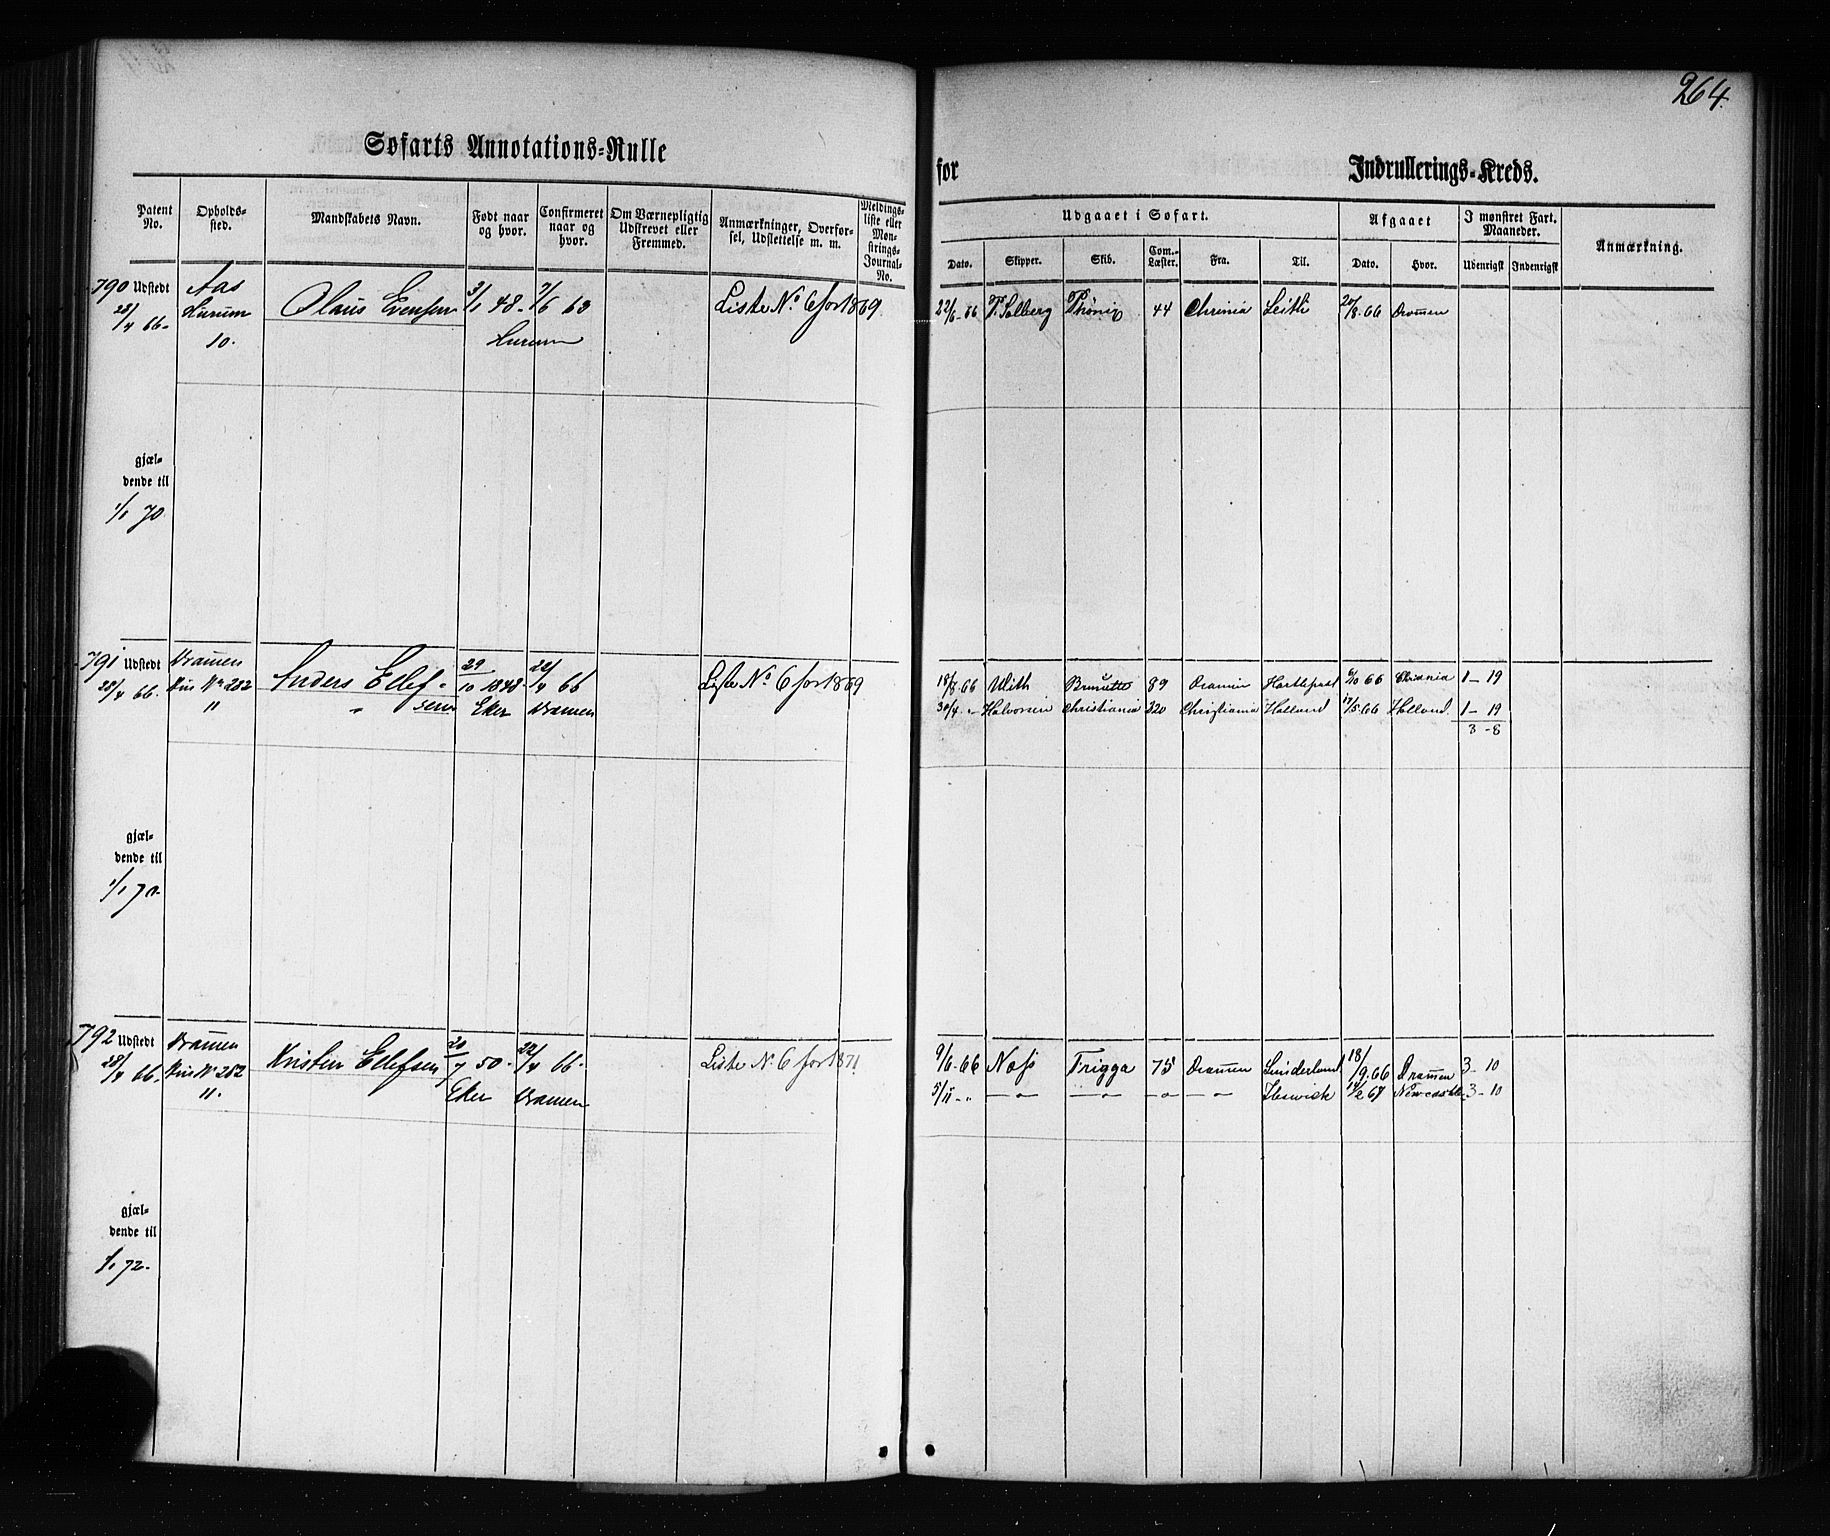 264.
Søfarts Annotations=Rulle
for
Indrullerings=Kreds.
Patent No.
Opholds=sted.
Mandskabets Navn.
Født naar og hvor.
Confirmeret naar og hvor.
Om Værnepligtig Udskrevet eller Fremmed.
Anmærkninger, Overfor=sel, Udslettelse m. m.
Meldings=liste eller Møn=strings=Journal=No.
Udgaaet i Søfart.
Afgaaet
I mønstret Fart. Maaneder.
Anmærkning.
Dato.
Skipper.
Skib.
Com.=Læster.
Fra.
Til.
Dato.
Hvor.
Udenrigst
Indenrigst
790 Udstedt Aas
28/4 66. Hurum Olaus Evensen 3/1 48. 7/6 63 Liste No 6 for 1869 22/6 66 P. Solberg Phønix 44 Chrinia Leith 20/8 66 Dramen
10. Hurum
gjæl=
dende til
1/1 70.
791 Udstedt Dramen
28/4 66. Hus No 282 Anders Ellef= 29/10 1848. 22/4 66 Liste No 6 for 1869 18/8 66 With Brunette 89 Dramen Hartlepool 6/10 66 Chrania 1 - 19
11 sen Eker Dramen 30/4 - Halvorsen Christiania 220 Christiania Holland 17/5 66 Holland 1 - 19
3 - 8
gjæl=
dende til
1/1 70.
792 Udstedt Dramen
28/4 66. Hus No 282 Kristen Ellefsen 20/7 50. 22/4 66. Liste No 6 for 1871 9/6 66 Næss Frigga 75 Dramen Sunderland 18/9 66 Dramen 3 - 10
11. Eker Dramen 5/11 - " — " — — " — - " - — " — 14/2 67 Newcastle 3 - 10
gjæl=
dende til
1/1 72.